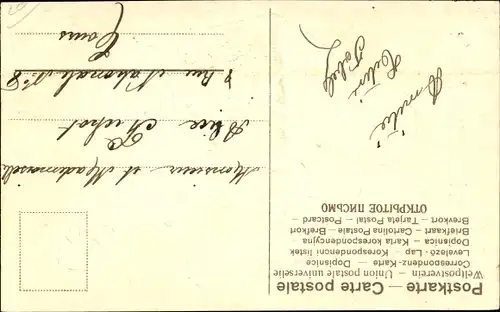 Postkarte — Carte postale
Weltpostverein — Union postale universelle
Correspondenz-Karte — Dopisnice
Levelező-Lap — Korespondencni listek
Dopisnica — Karta korespondencyjna
Briefkaart — Cartolina Postale — Brefkort
Brevkort — Tarjeta Postal — Postcard
ОТКРЫТОЕ ПИСЬМО
Amitié
Monsieur et Mademoiselle
Alice
Rue Nationale N° 8